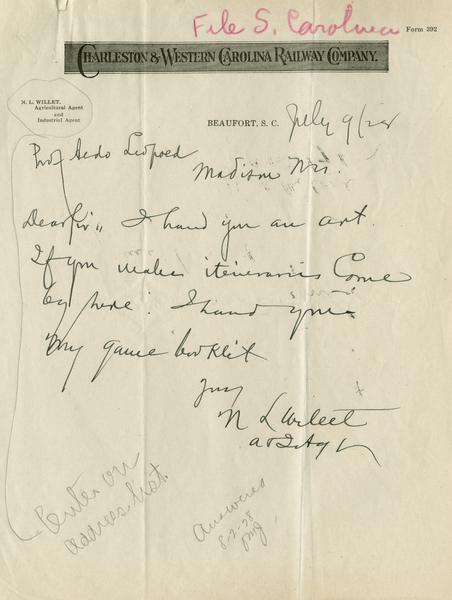 File S. Carolina
Form 392
CHARLESTON & WESTERN CAROLINA RAILWAY COMPANY.
N. L. WILLET,
Agricultural Agent
and
Industrial Agent
BEAUFORT, S. C. July 9/28
Prof Aldo Leopold
Madison Wis.
Dear Sir,, I hand you an art.
If you makes itineraries Come
by here. I hand you
My game booklit
Truly
N L Willet
Enter on
address list.
Answered
8-2-28